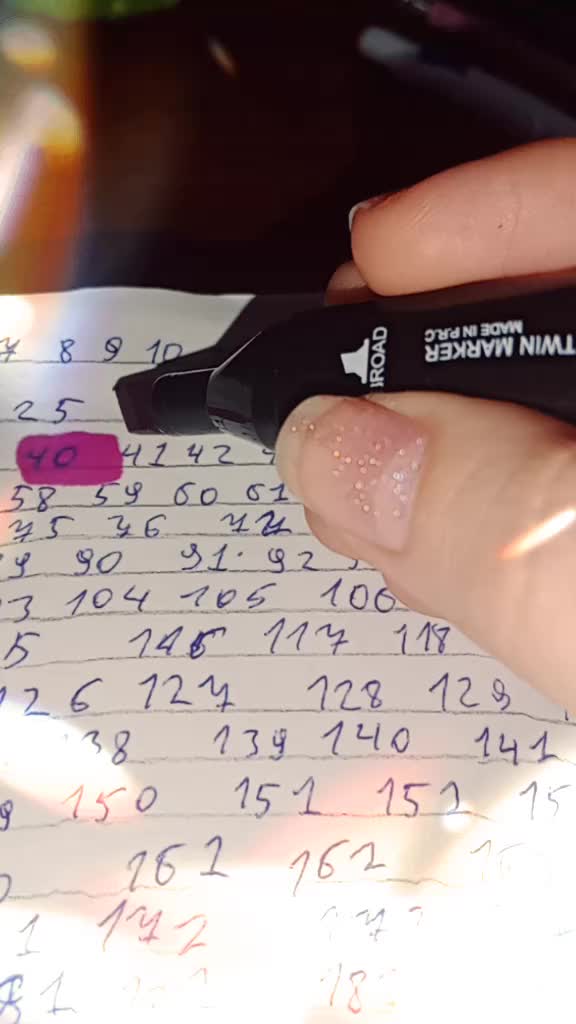 7 8 9 10
25
40 41 42
58 59 60 61
75 76 77
90 91. 92
104 105 106
5 116 117 118
126 127 128 129
138 139 140 141
150 151 152 15
161 162
1 172
81 18
BROAD
TWIN MARKER
MADE IN P.R.C